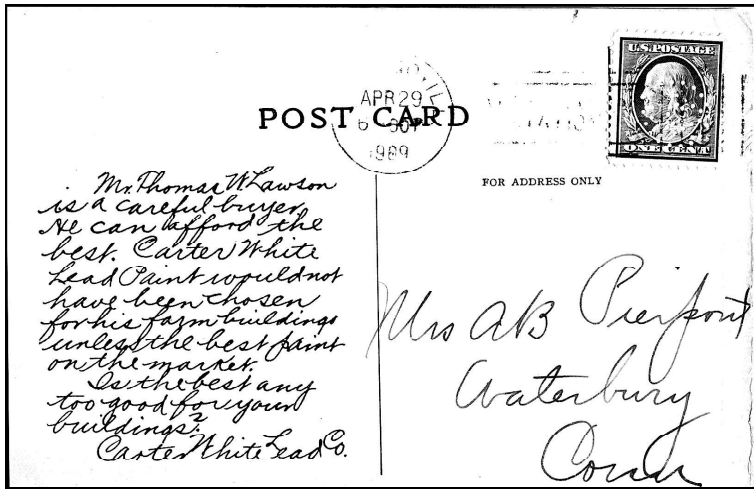 U.S. POSTAGE
ONE CENT
APR 29
1909
POST CARD
FOR ADDRESS ONLY
Mr. Thomas W. Lawson
is a careful buyer.
He can afford the
best. Carter White
Lead Paint would not
have been chosen
for his farm buildings
unless the best paint
on the market.
Is the best any
too good for your
buildings?
Carter White Lead Co.
Mrs AB Pierpont
Waterbury
Conn